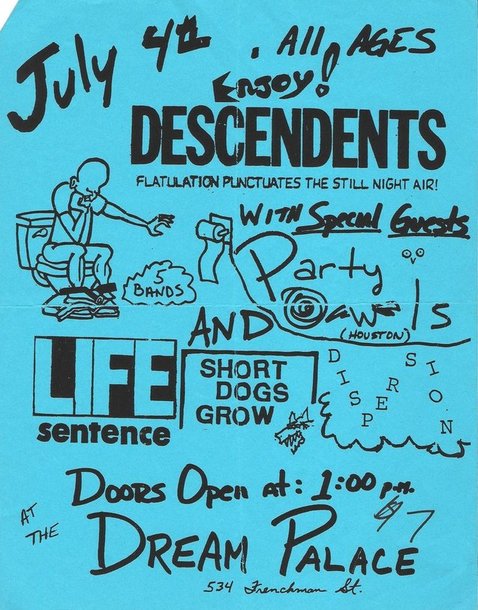 July 4th . All AGES
ENJOY!
DESCENDENTS
FLATULATION PUNCTUATES THE STILL NIGHT AIR!
WITH Special Guests
Party
Owels
(HOUSTON)
5
BANDS
AND
LIFE
sentence
SHORT
DOGS
GROW
DISPERSION
DOORS Open At: 1:00 P.M.
$7
AT
THE
DREAM PALACE
534 Frenchman St.